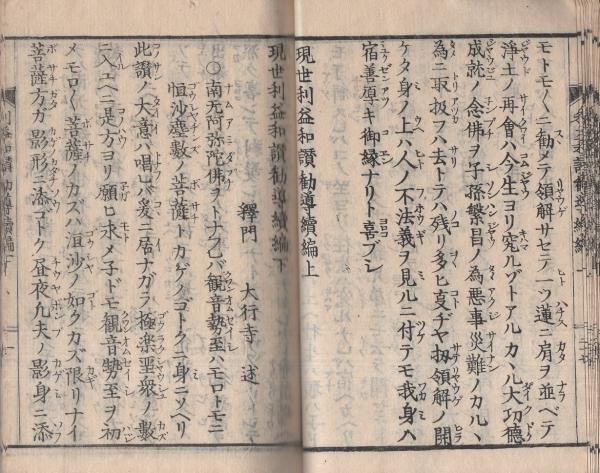 モトモ〱ニ勧メテ領解サセテ一ツ蓮ニ肩ヲ並ベテ
淨土ノ再會ハ今生ヨリ究ルゾトアルカヽル大功德
成就ノ念佛ヲ子孫繁昌ノ為悪事災難ノカルヽ
為ニ取扱フハ去トテハ残リ多ヒ夏ヂヤ扨領解ノ開
ケタ身ノ上ハ人ノ不法義ヲ見ルニ付テモ我身ハ
宿善厚キ御縁ナリト喜ブシ
現世利益和讃勧導續編上
現世利益和讃勧導續編下
釋門 大行寺 述
出○南无阿弥陀佛ヲトナフレバ觀音勢至ハモロトモニ
恒沙塵數ノ菩薩トカゲノゴトクニ身ニソヘリ
此讃ノ大意ハ唱レバ爰ニ居ナガラ極楽聖衆ノ數
ニ入ルユヘニ是方ヨリ願ヒ求メ子ドモ観音勢至ヲ初
メモロ〱ノ菩薩ノカズハ沍沙ノ如クカズ限リナイ
菩薩方ガ影形ニ添ゴトク昼夜九夫ノ影身ニ添